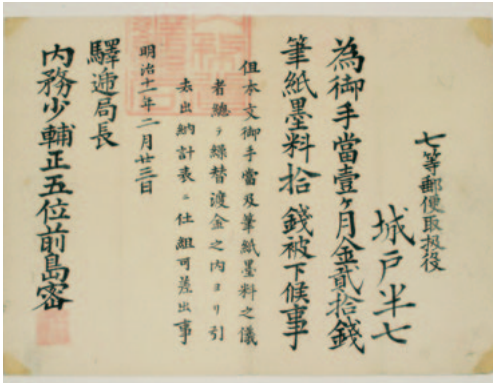 七等郵便取扱役
城戸半七
為御手當壹ヶ月金貳拾錢
筆紙墨料拾錢被下候事
但本文御手當及筆紙墨料之儀
者總テ繰替渡金之内ヨリ引
去出納計表ニ仕組可差出事
明治十一年二月廿三日
驛遞局長
内務少輔正五位前島密